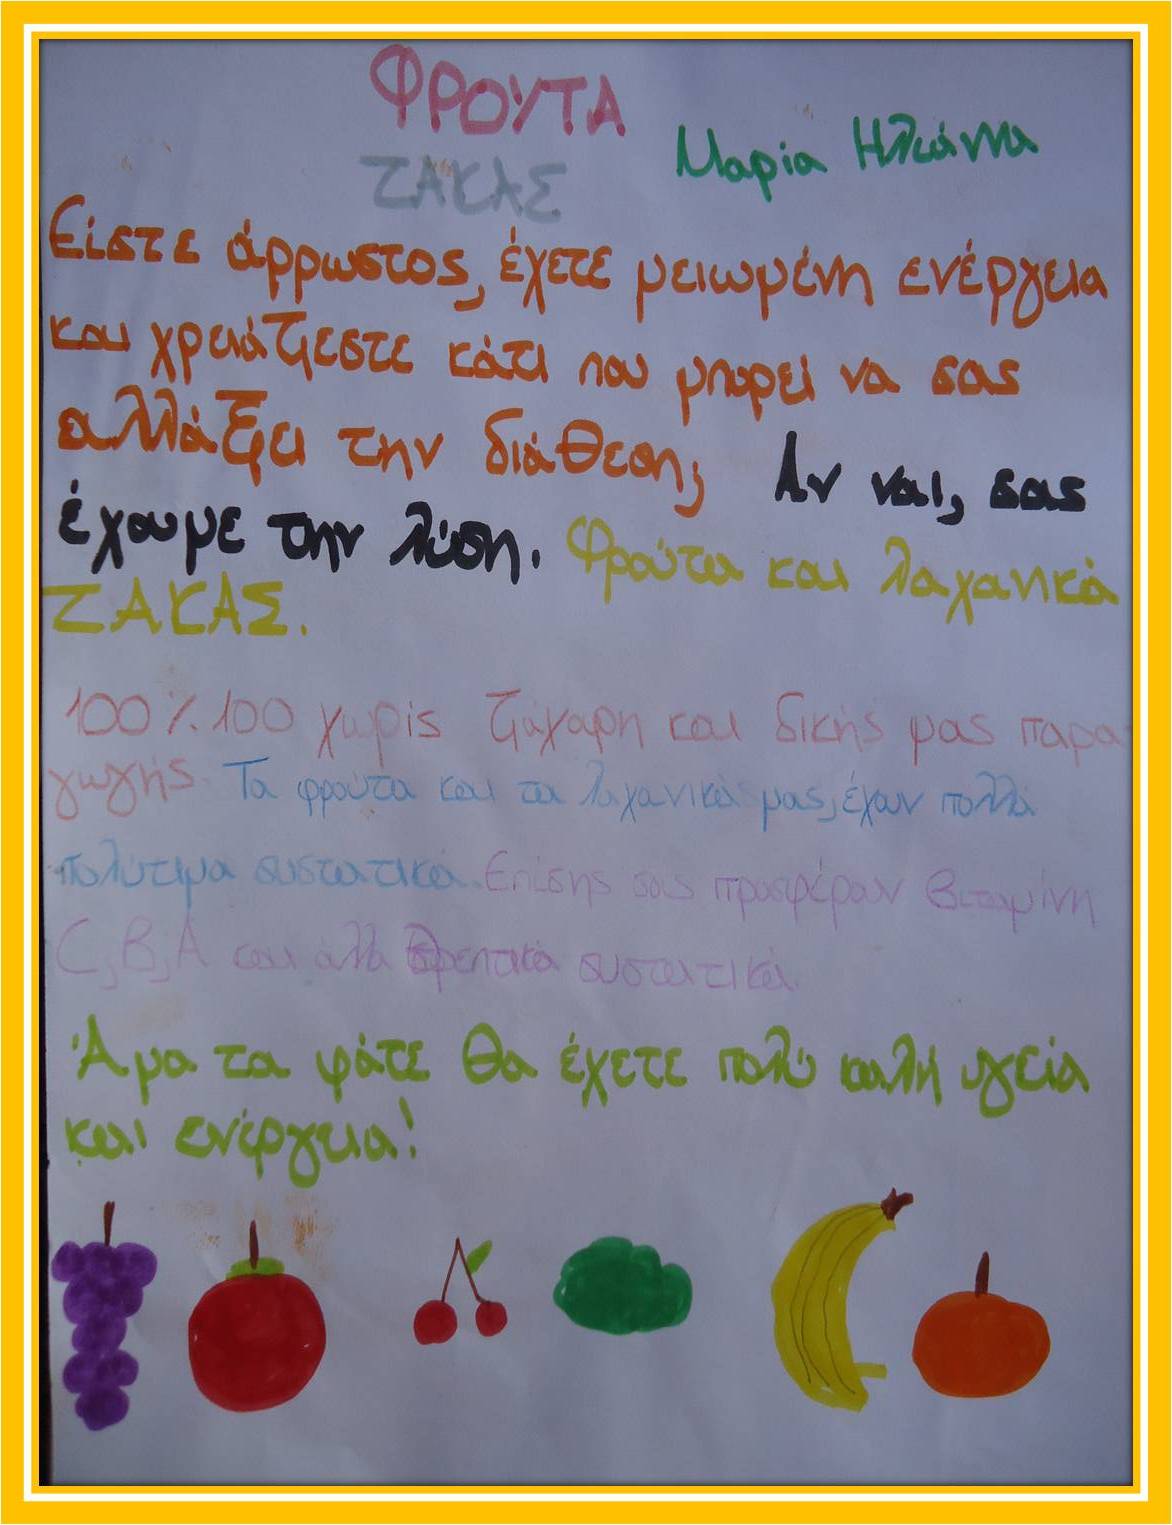 ΦΡΟΥΤΑ
ΖΑΚΑΣ
Μαρία Ηλιάννα
Είστε άρρωστος, έχετε μειωμένη ενέργεια
και χρειάζεστε κάτι που μπορεί να σας
αλλάξει την διάθεση; Αν ναι, σας
έχουμε την λύση. Φρούτα και λαχανικά
ΖΑΚΑΣ.
100%100 χωρίς ζάχαρη και δικής μας παρα-
γωγής. Τα φρούτα και τα λαχανικά μας, έχουν πολλά
πολύτιμα συστατικά. Επίσης σας προσφέρουν βιταμίνη
C, B, A και άλλα θρεπτικά συστατικά.
Άμα τα φάτε θα έχετε πολύ καλή υγεία
και ενέργεια!